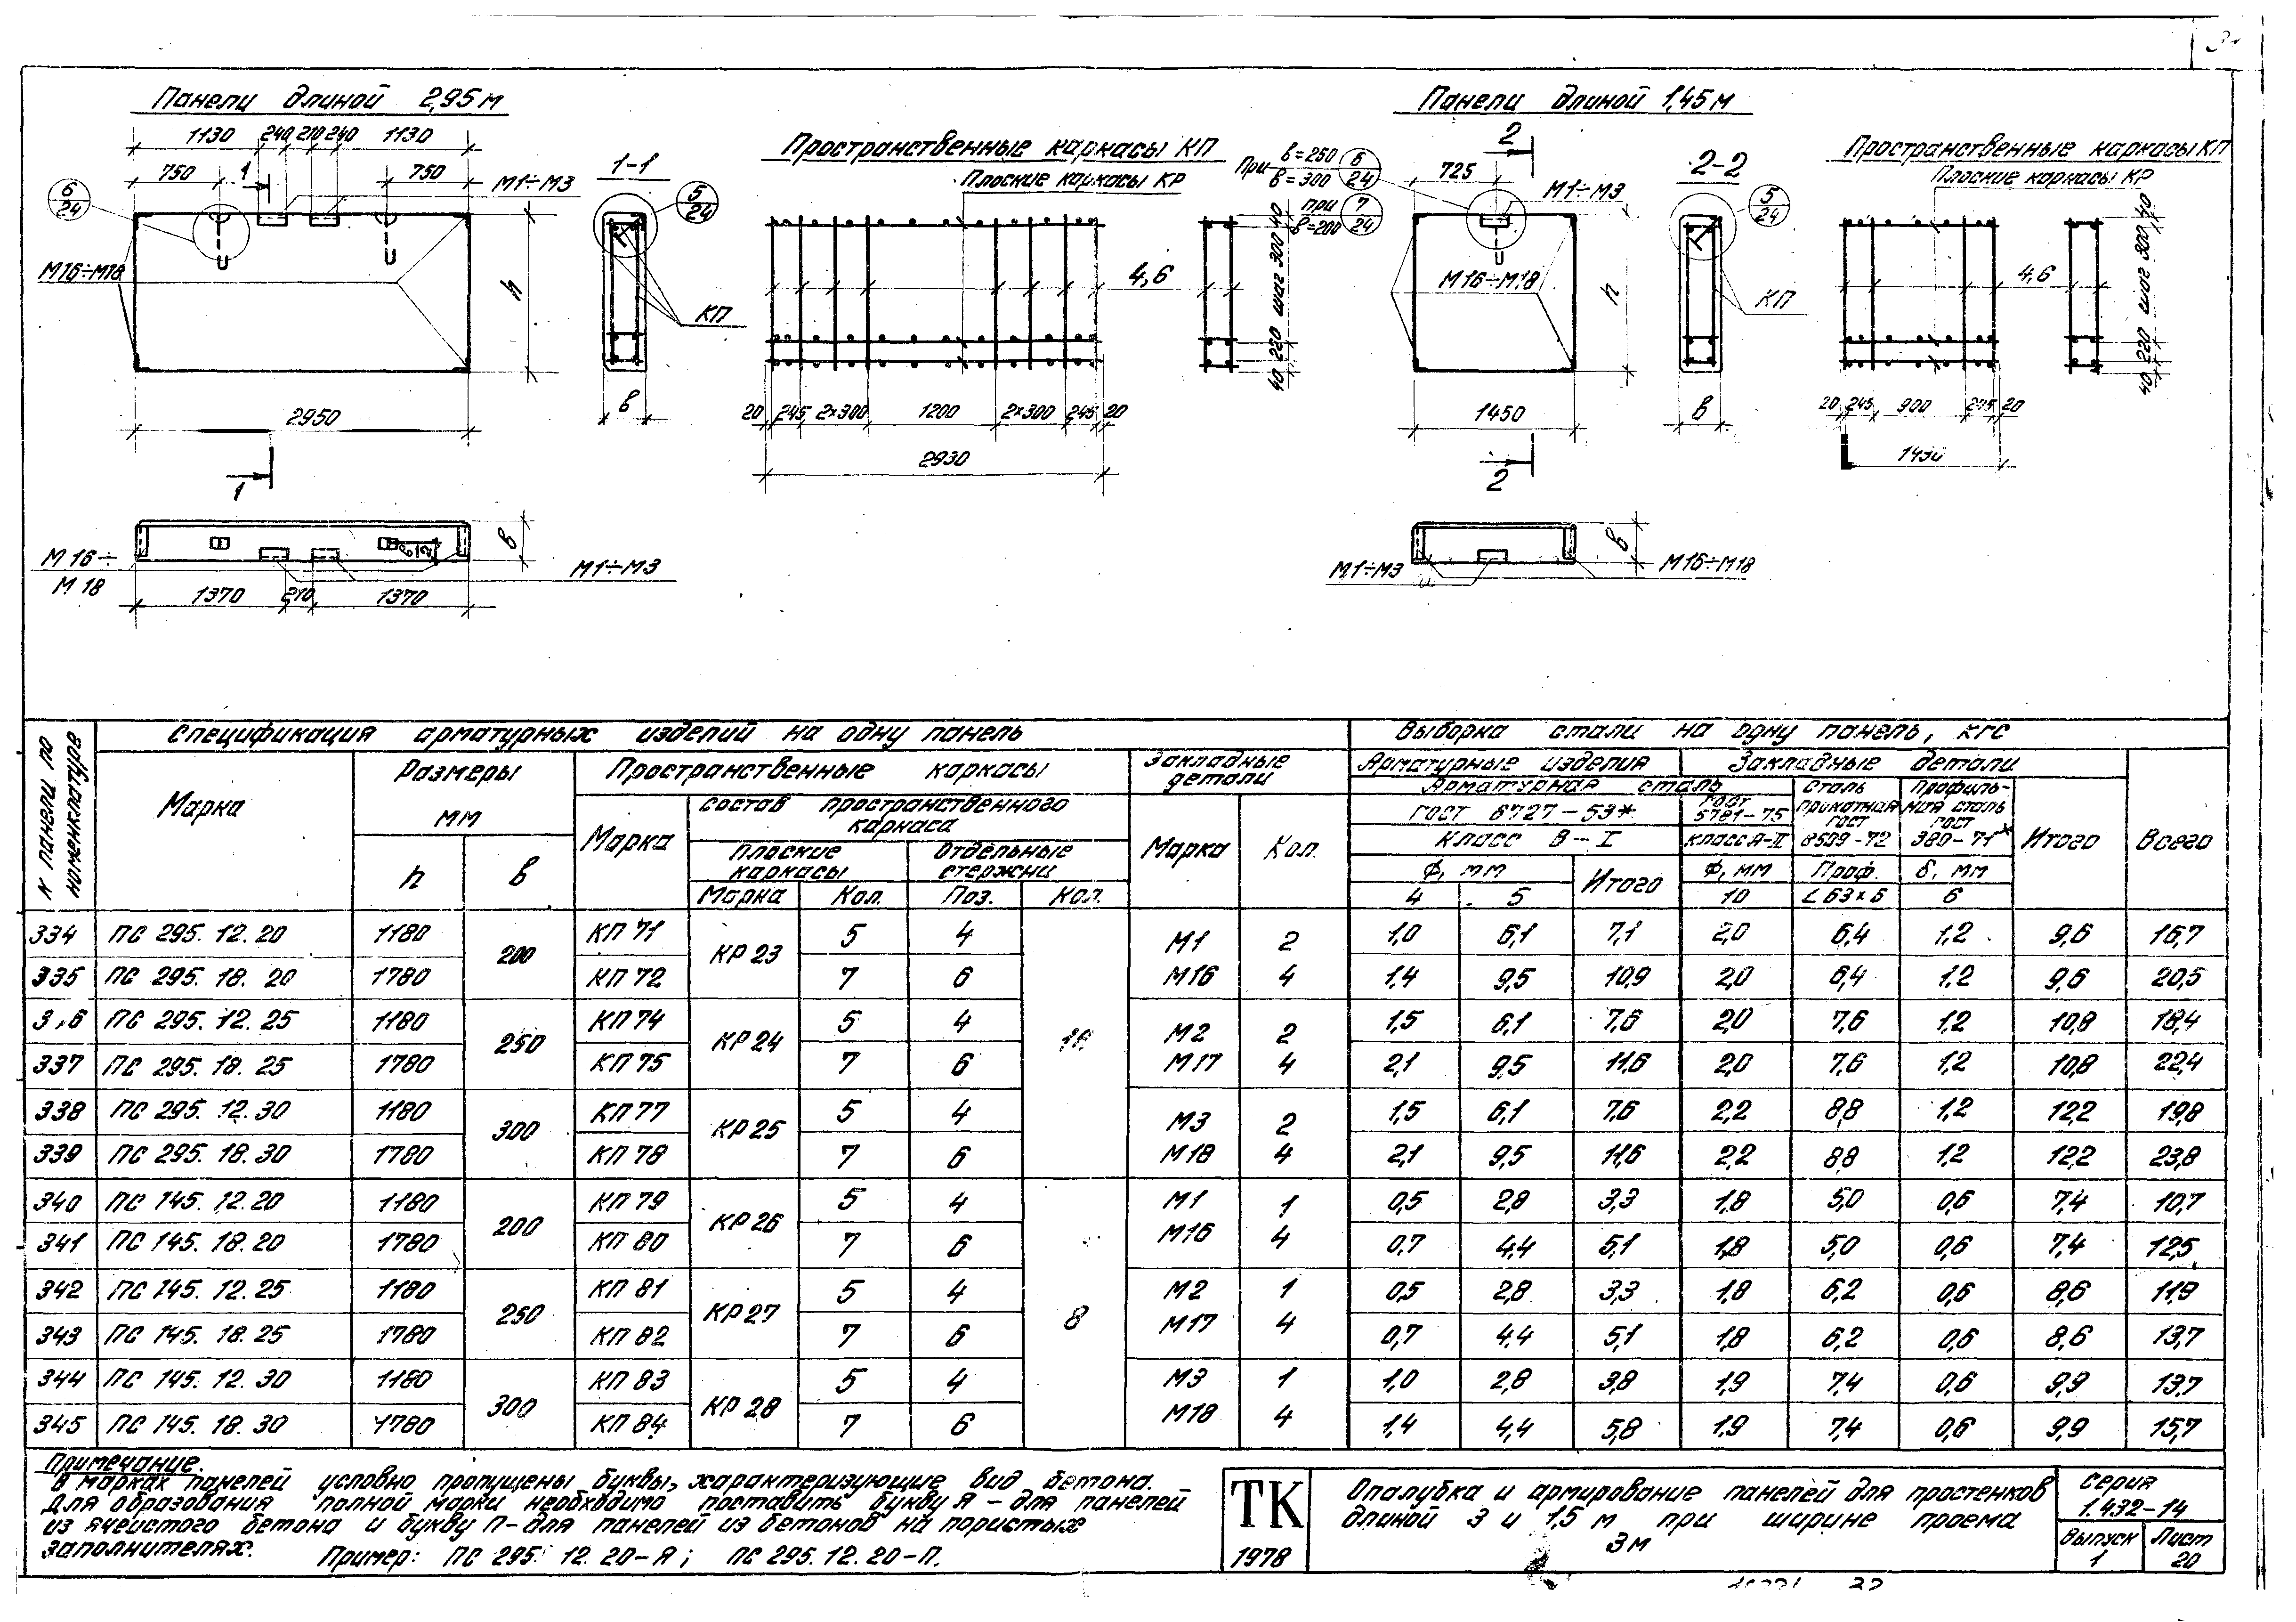 Панели длиной 2,95 м
1130 240 210 240 1130
750 1 750
6
24
М1÷М3
М16÷М18
h
2950
1
1-1
5
24
КП
в
Пространственные каркасы КП
Плоские каркасы КР
4,6
40 220 шаг 300 40
20 245 2×300 1200 2×300 245 20
2930
М16÷
М18
М1÷М3
в
1370 210 1370
Панели длиной 1,45 м
2
При в=250 6
в=300 24
при 7
в=200 24
725
М1÷М3
М16÷М18
h
1450
2
2-2
5
24
КП
в
Пространственные каркасы КП
Плоские каркасы КР
4,6
40 220 шаг 300 40
20 245 900 245 20
1430
М1÷М3
М16÷М18
в
Спецификация арматурных изделий на одну панель
Выборка стали на одну панель, кгс
К панели по номенклатуре
Марка
Размеры мм
h
в
Пространственные каркасы
Марка
состав пространственного каркаса
Плоские каркасы
Отдельные стержни
Марка Кол. Поз. Кол.
Закладные детали
Марка Кол.
Арматурные изделия
Закладные детали
Арматурная сталь
ГОСТ 6727-53*
ГОСТ 5781-75
Сталь прокатная ГОСТ 8509-72
Профильная сталь ГОСТ 380-71*
Класс В-I
Класс А-II
Ф, мм Итого Ф, мм Проф. δ, мм
4 5 10 ∠63×6 6
Итого
Всего
334 ПС 295.12.20 1180 200 КП 71 КР 23 5 4 16 М1 2 1,0 6,1 7,1 2,0 6,4 1,2 9,6 16,7
335 ПС 295.18.20 1780 КП 72 7 6 М16 4 1,4 9,5 10,9 2,0 6,4 1,2 9,6 20,5
336 ПС 295.12.25 1180 250 КП 74 КР 24 5 4 М2 2 1,5 6,1 7,6 2,0 7,6 1,2 10,8 18,4
337 ПС 295.18.25 1780 КП 75 7 6 М17 4 2,1 9,5 11,6 2,0 7,6 1,2 10,8 22,4
338 ПС 295.12.30 1180 300 КП 77 КР 25 5 4 М3 2 1,5 6,1 7,6 2,2 8,8 1,2 12,2 19,8
339 ПС 295.18.30 1780 КП 78 7 6 М18 4 2,1 9,5 11,6 2,2 8,8 1,2 12,2 23,8
340 ПС 145.12.20 1180 200 КП 79 КР 26 5 4 8 М1 1 0,5 2,8 3,3 1,8 5,0 0,6 7,4 10,7
341 ПС 145.18.20 1780 КП 80 7 6 М16 4 0,7 4,4 5,1 1,8 5,0 0,6 7,4 12,5
342 ПС 145.12.25 1180 250 КП 81 КР 27 5 4 М2 1 0,5 2,8 3,3 1,8 6,2 0,6 8,6 11,9
343 ПС 145.18.25 1780 КП 82 7 6 М17 4 0,7 4,4 5,1 1,8 6,2 0,6 8,6 13,7
344 ПС 145.12.30 1180 300 КП 83 КР 28 5 4 М3 1 1,0 2,8 3,8 1,9 7,4 0,6 9,9 13,7
345 ПС 145.18.30 1780 КП 84 7 6 М18 4 1,4 4,4 5,8 1,9 7,4 0,6 9,9 15,7
Примечание.
В марках панелей условно пропущены буквы, характеризующие вид бетона.
Для образования полной марки необходимо поставить букву Я - для панелей
из ячеистого бетона и букву П - для панелей из бетонов на пористых
заполнителях. Пример: ПС 295.12.20-Я; ПС 295.12.20-П.
ТК
1978
Опалубка и армирование панелей для простенков
длиной 3 и 1,5 м при ширине проема
3м
Серия
1.432-14
Выпуск
1
Лист
20